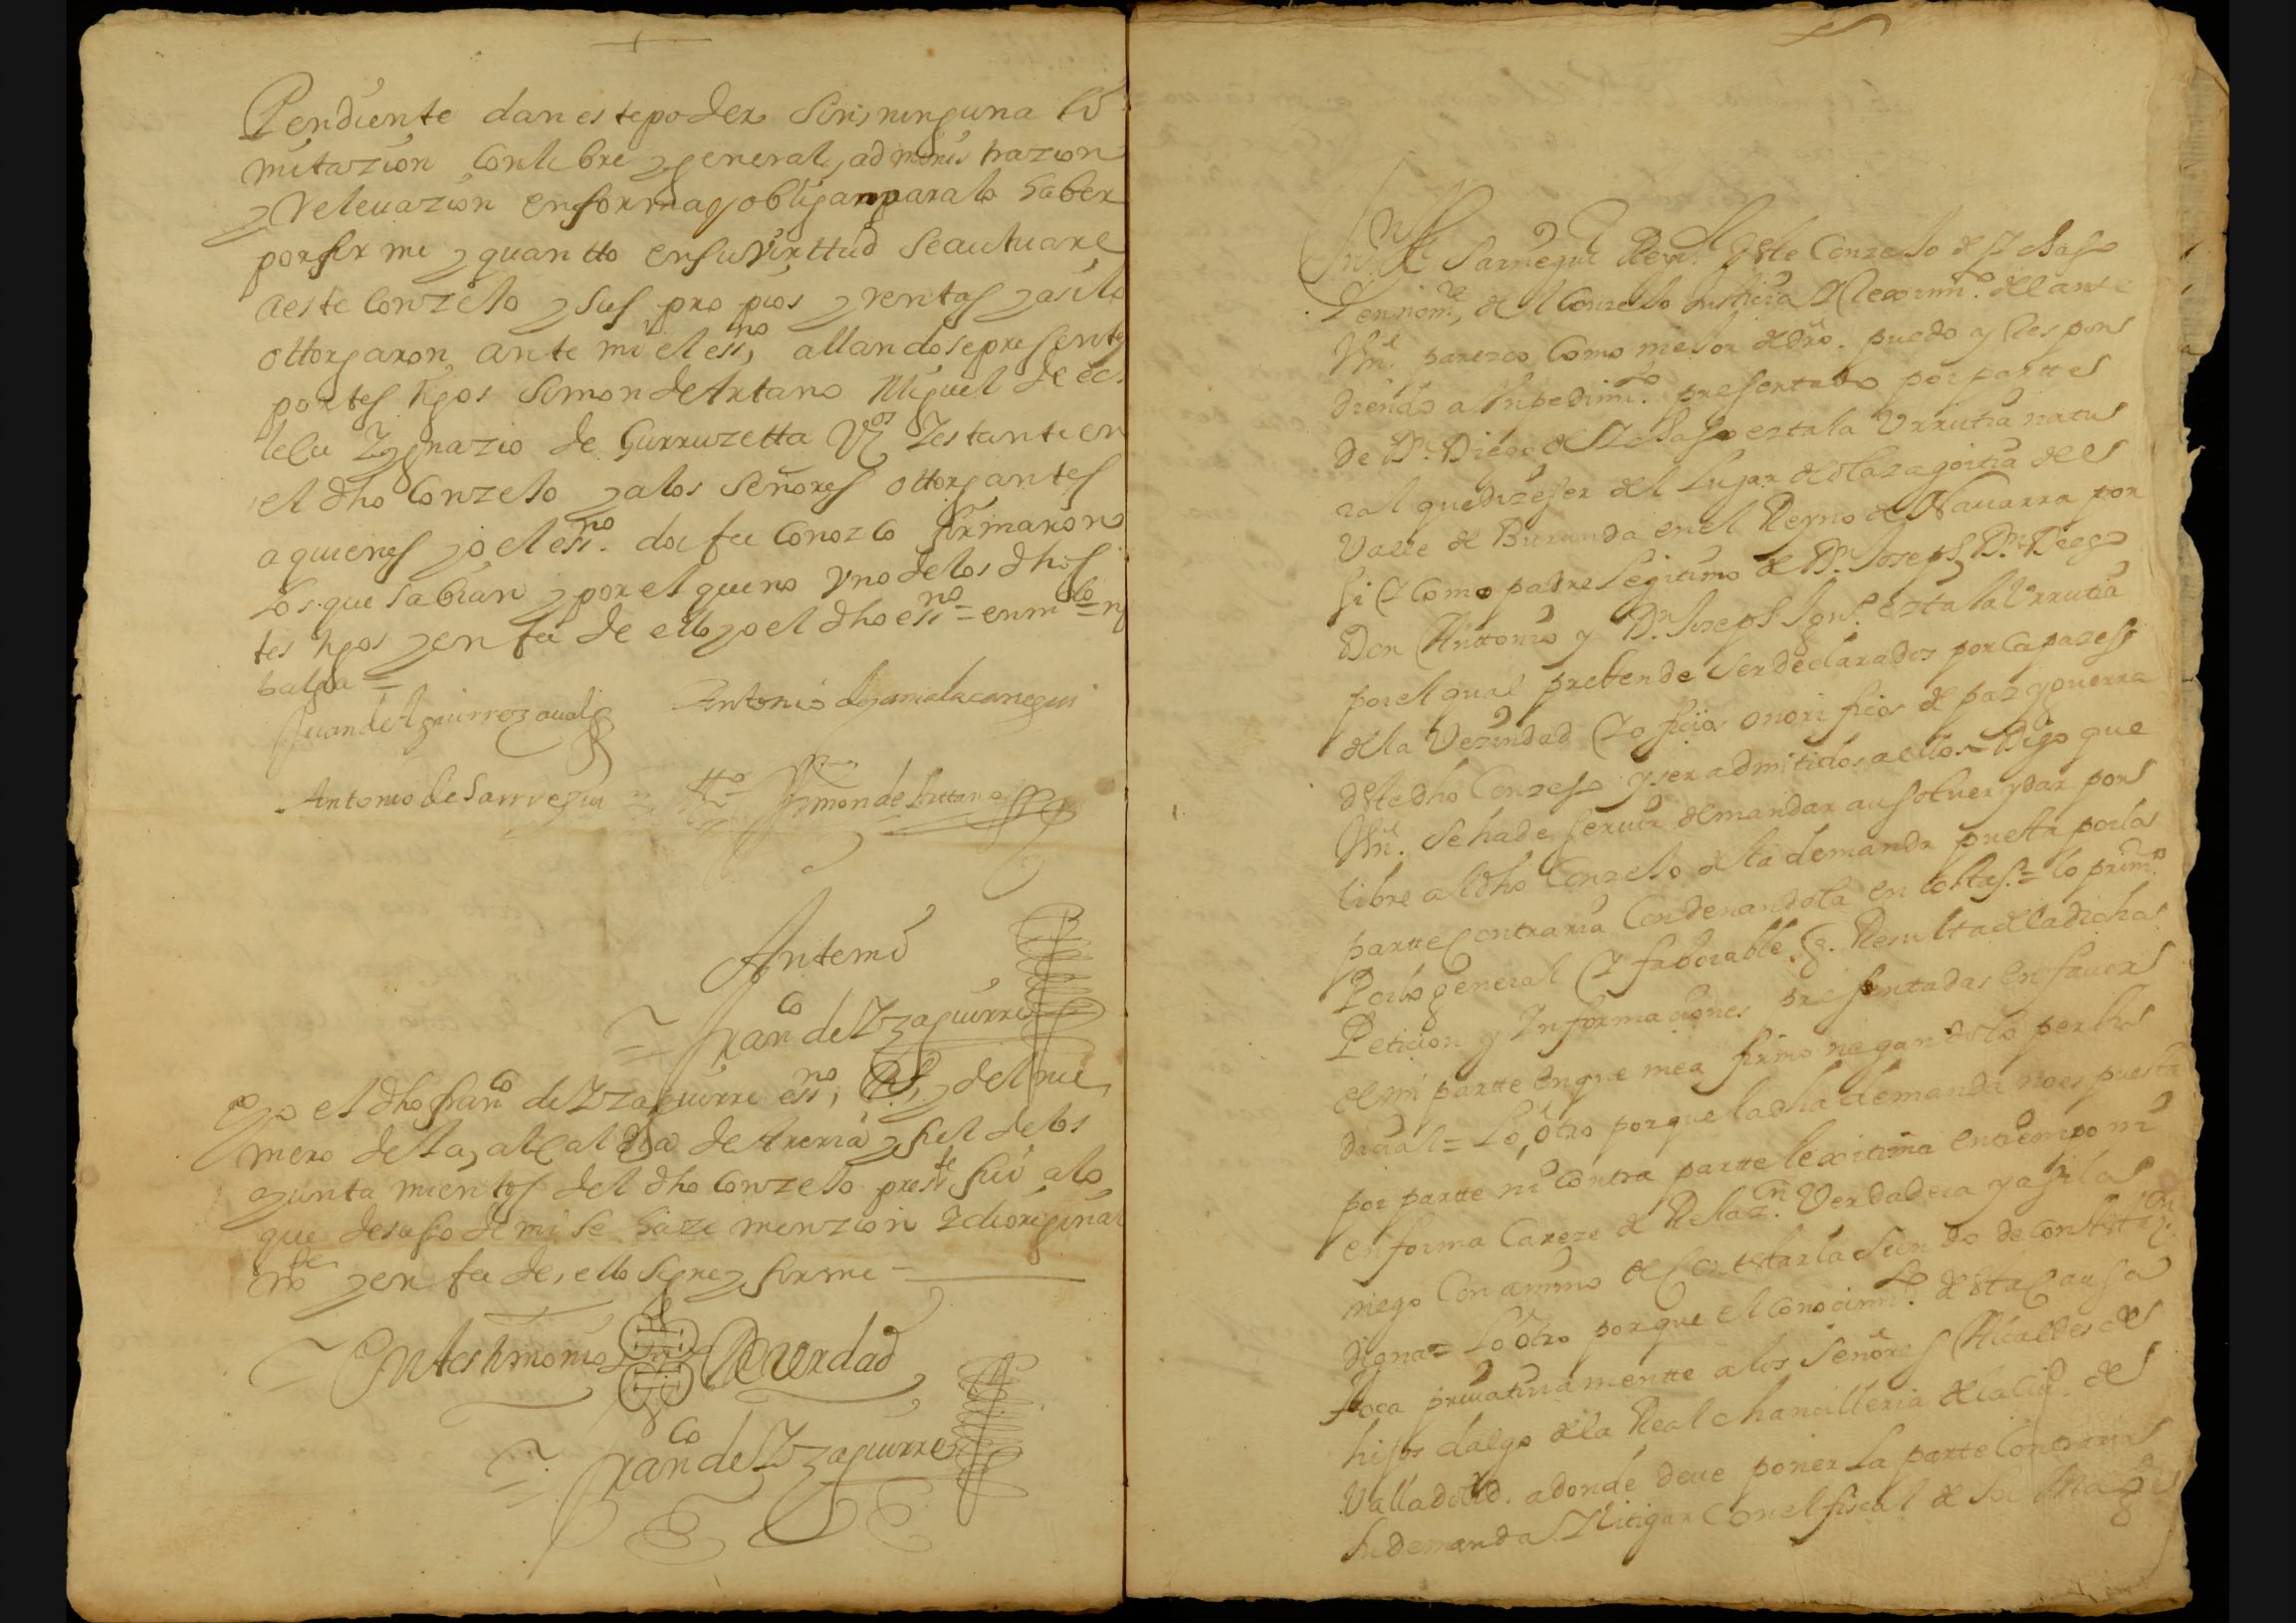 Pendiente dan este poder sin ninguna li
mitazion con libre y general administrazion
y relevazion en forma y obligan para lo haber
por firme y quantto en su virttud se autuare
a este conzejo y sus propios y rentas y asi lo
ottorgaron ante mi el essno, allandose presentes
por testigos Simon de Artano Miguel de
Ygnazio de Gurruzetta Vos Yestante en
el dho conzejo y a los señores ottorgantes
a quienes yo el essno. doi fee conozco firmaron
los que sabian y por el que no uno de los dhos
testigos y en fee de ello yo el dho essno = enmdo =
balga =
Juan de Aguirrezavala Antonio de Zamalacarregui
Antonio de Sarrregui = tto Simon de Arttano
Ante mi
= Franco de Yzaguirre
E yo el dho franco de Yzaguirre essno, Rl, y del nu
mero desta alcaldia de Areria y fiel de los
ayuntamientos del dho conzejo preste fui a lo
que de suso de mi se haze menzion
y en fee de ello signe y firme =
= En testimonio de verdad
= Franco de Yzaguirre
Sarregui Regr. deste Conzejo de
Y en nome, del Conzejo Justicia y Reximto. del ante
Vm. parezco como mejor de dro. puedo y respon
diendo a impedimto. presentado por partte
de Dn. Diego de eztala Urrutia natu
ral que dize ser del Lugar de Olazagoitia del
Valle de Burunda en el Reyno de Navarra por
si y como padre legitimo de Dn. Joseph, Dn. Diego
Don Anttonio y Dn. Joseph Ign. eztala Urrutia
por el qual prettende ser declarados por capazes
de la Vezindad y oficios onorificos de paz y guerra
deste dho Conzejo y ser admitidos a ellos = Digo que
Vm. se ha de servir de mandar absolver y dar por
libre al dho Conzejo de la demanda puesta por la
partte contraria condenandola en costas = lo primo.
Por lo general y favorable. Resulta de la dicha
Peticion y Informaciones presentadas en favor
de mi partte en que me afirmo negando lo perju
dicial = Lo otro porque la dha demanda no es puesta
por partte ni contra partte lexitima en tiempo ni
en forma careze de Relazn. Verdadera y asi la
niego con animo de contestarla siendo de contestazn.
digna = Lo otro porque el conocimto. desta causa
toca privativamentte a los Señores Alcaldes de
hijos dalgo de la Real chancilleria de la ciud. de
Valladolid. adonde deve poner la parte contraria
su demanda y litigar con el fiscal de su Magd